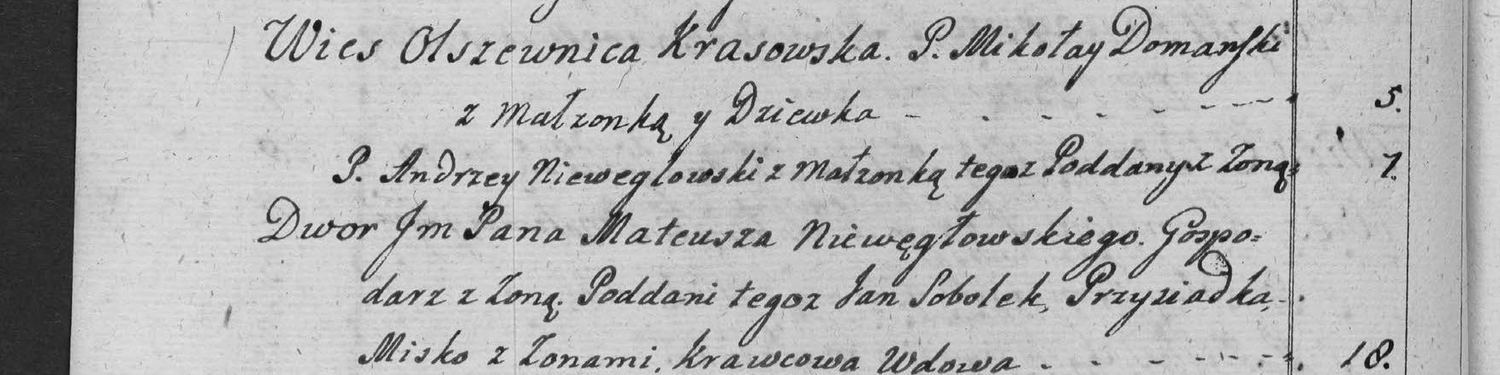 Wies Olszewnica Krasowska. P. Mikołay Domanski
z Małzonką y Dziewka - - - - - - - 5.
P. Andrzey Nieweglowski z Małzonką tegoz Poddany z Zoną: 7.
Dwor Jm Pana Mateusza Niewęgłowskiego. Gospo=
darz z Zoną. Poddani tegoz Jan Sobolek, Przysiadka,
Misko z Zonami, Krawcowa Wdowa - - - - - - 18.